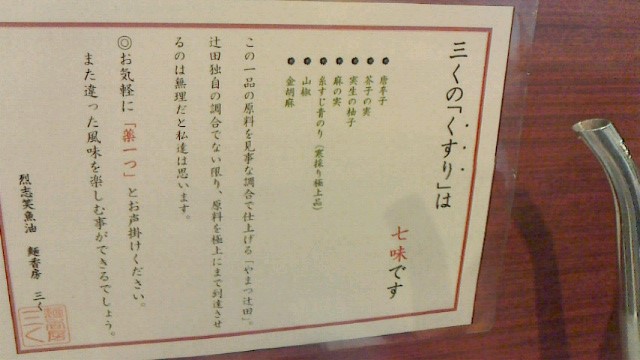 三くの「くすり」は
七味です
唐辛子
芥子の実
実生の柚子
麻の実
糸すじ青のり（寒採り極上品）
山椒
金胡麻
この一品の原料を見事な調合で仕上げる「やまつ辻田」。
辻田独自の調合でない限り、原料を極上にまで到達させ
るのは無理だと私達は思います。
◎お気軽に「薬一つ」とお声掛けください。
また違った風味を楽しむ事ができるでしょう。
烈志笑魚油 麺香房 三く